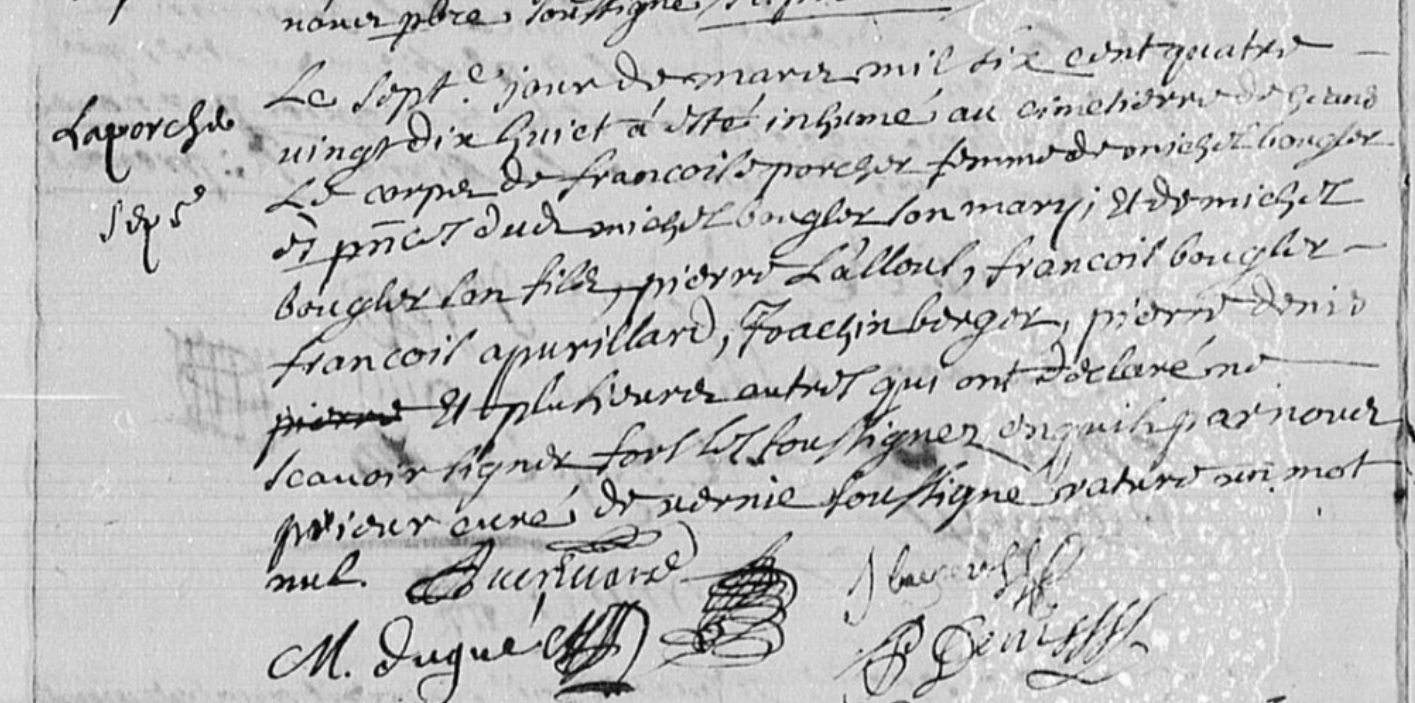 nouez pbre soussigné
Le sept.e jour de marez mil six cent quatre
Laporche
uingt dix huict a esté inhumé au cimetierre de
Le corps de francoise porcher femme de michel bougler
sep.e
et pnces dud michel bougler son mary, et de michel
bougler son filz, pierre Lalloul, francois bougler
francois apurillard, Joachin berger, pierre denis
pierre et plusieurez autres qui ont declaré ne
scauoir signer fors les soussignez enquis par nouez
prieur curé de uernie soussigné raturé un mot
nul.
M. dugué
P Denis